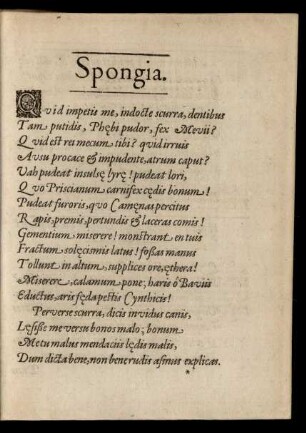 Spongia.
Qvid impetis me, indocte scurra, dentibus
Tam putidis, Phębi pudor, fex Mevii?
Qvid est rei mecum tibi? qvid irruis
Ausu procace & impudente, atrum caput?
Vah pudeat insulsę lyrę! pudeat lori,
Qvo Priscianum carnifex cędis bonum!
Pudeat furoris, qvo Camęnas percitus
Rapis, premis, pertundis & laceras comis!
Gementium miserere! monstrant en tuis
Fractum solęcismis latus! fossas manus
Tollunt in altum, supplices ore, ęthera!
Miserere, calamum pone; haris ô Baviii
Eductus, aris fęda pestis Cynthicis!
Perverse scurra, dicis invidus canis,
Lęsisse me versu bonos malo; bonum
Metu malus mendaciis lędis malis,
Dum dicta bene, non bene rudis asinus explicas.